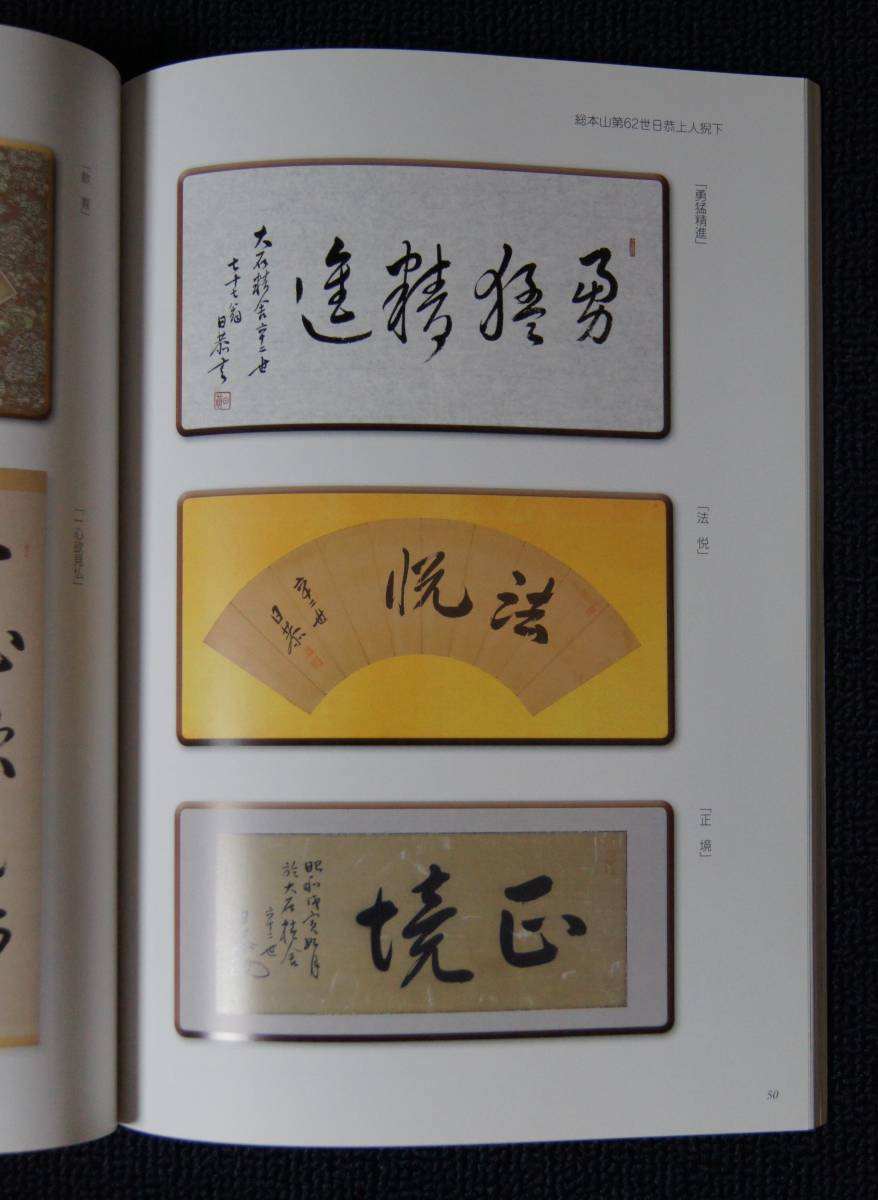 総本山第62世日恭上人猊下
「勇猛精進」
勇猛精進
大石精舎六十二世
七十七翁
日恭
「法 悦」
法悦
六十二世
日恭
「正 境」
正境
昭和
於大石精舎
六十二世
「歓 喜」
「一心欲見仏」
50